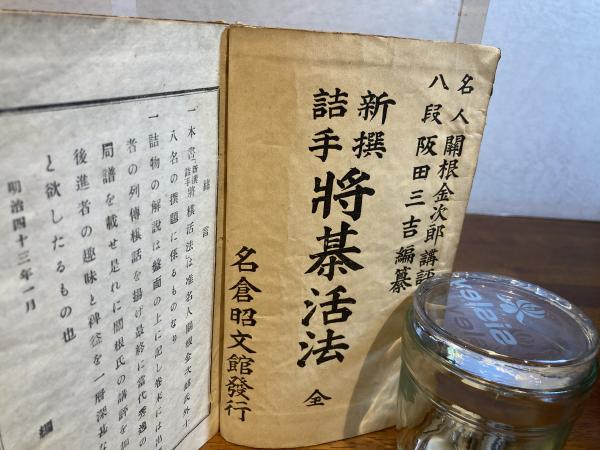 名人關根金次郎講評
八段阪田三吉編纂
新撰
詰手
將棊活法
全
名倉昭文館發行
緒言
一本書(新撰詰手)將棋活法は准名人關根金次郎氏外十
八名の撰題に係るものなり
一詰物の解説は盤面の上に記し卷末には出
者の列傳棋話を揚げ最終に當代秀逸の
局譜を載せ是れに關根氏の講評を
後進者の趣味と裨益を一層深甚な
と欲したるもの也
明治四十三年一月
編